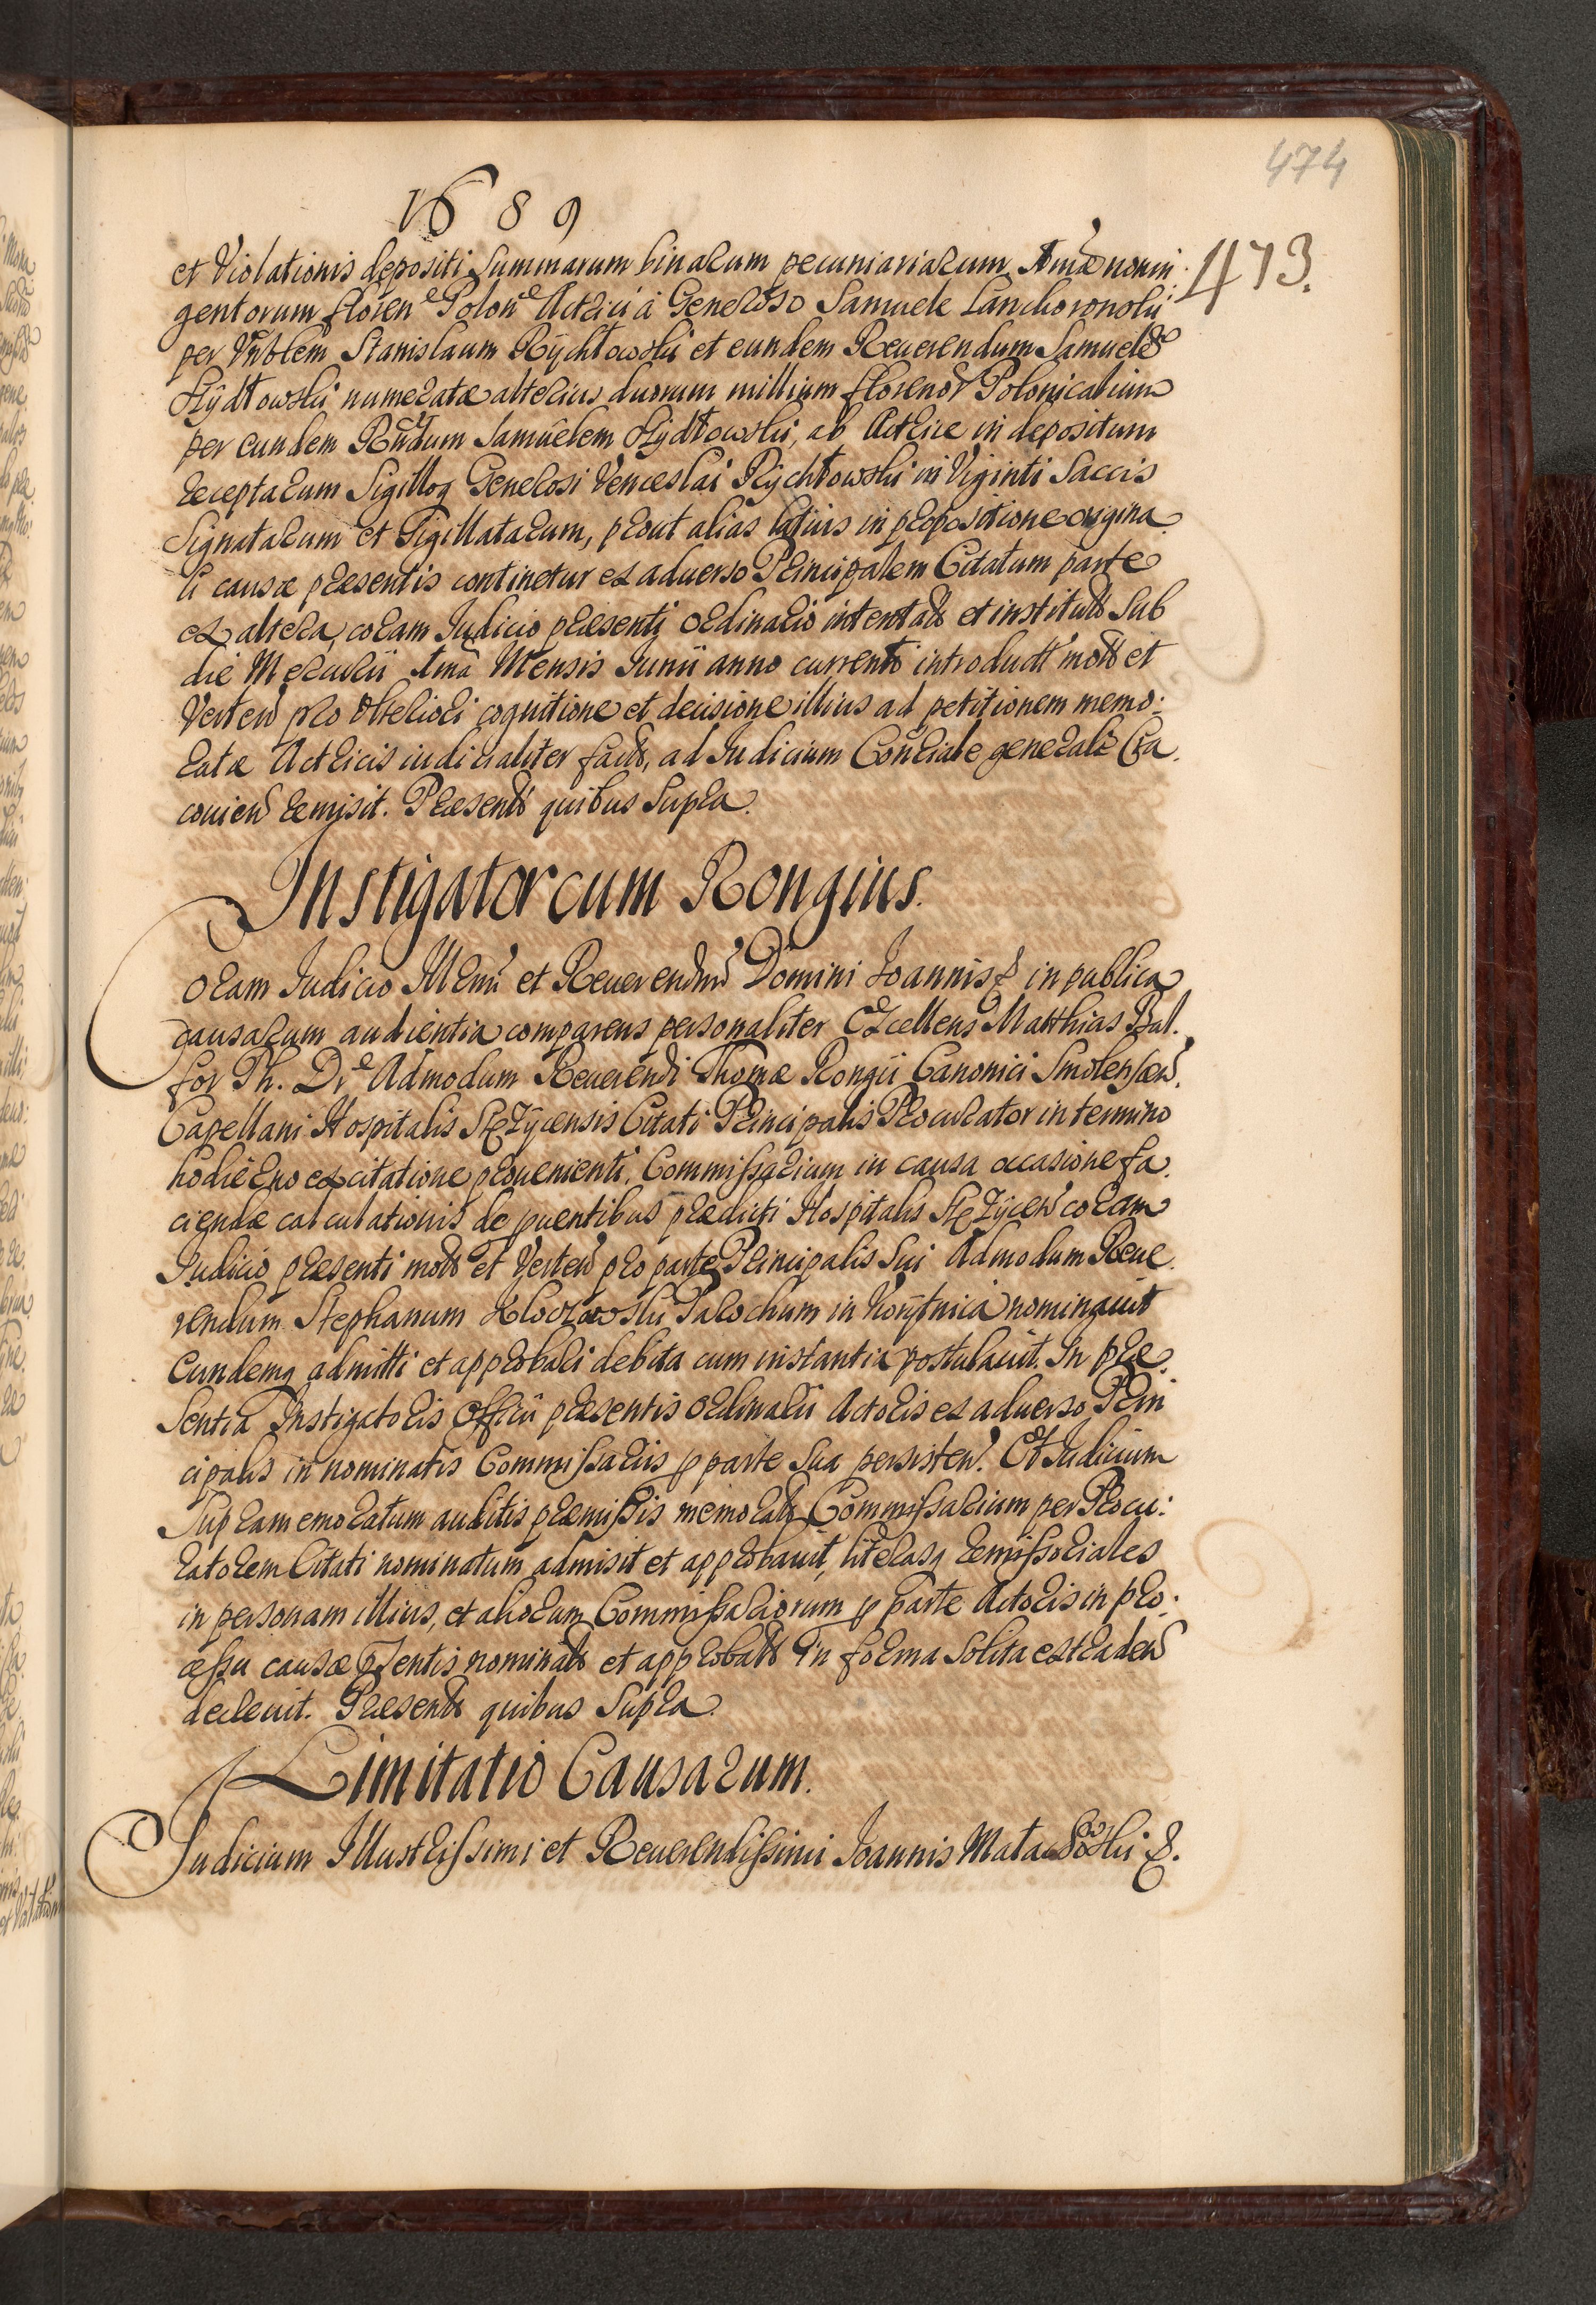 474
1689
473.
et Violationis depositi Summarum binarum pecuniariarum nonin:
gentorum floren Polon Actrici á Generoso Samuele Lanckoronski
per Stanislaum Rÿchłowski et eundem Reuerendum Samuele
numeratæ alterius duorum millium florenor Polonicalium
per eundem Rndum Samuelem ab Actrice in depositum
receptarum Sigilloq Generosi Venceslai Rÿchłowski in Viginti Saccis
Signatarum et Sigillatarum, prout alias latius in propositione origina
li causæ præsentis continetur ex aduerso Principalem Citatum parte
ex altera, coram Judicio præsenti Ordinario intentat et institut Sub
die Mercurii 1ma Mensis Junii anno current introduct mot et
Verten pro Vlteriori cognitione et decisione illius ad petitionem memo:
ratæ Actricis iudicialiter fact, ad Judicium Conrale generale Cra
couien remisit. Præsent quibus Supra.
Instigator cum Rongius.
Coram Judicio Illmi et Reuerendmi Domini Joannis & in publica
causarum audientia comparens personaliter Excellens Matthias Bal.
for Ph. Dr Admodum Reuerendi Thomæ Rongii Canonici Smolenscen.
Capellani Hospitalis Stęzÿcensis Citati Principalis Procurator in termino
hodierno ex citatione prouenienti, Commissarium in causa occasione fa
ciendæ calculationis de prouentibus prædicti Hospitalis Stęzÿcen coram
Judicio præsenti mot et Verten pro parte Principalis Sui Admodum Reue
rendum Stephanum Parochum in nominauit
Eundemq admitti et approbari debita cum instantia postulauit. In præ
Sentia Instigatoris Officii præsentis Ordinarii Actoris ex aduerso Prin
cipalis in nominatis Commissariis p parte Sua persisten. Et Judicium
Supramemoratum auditis præmissis memorat Commissarium per Procu:
ratorem Citati nominatum admisit et approbauit, literasq remissoriales
in personam illius, et aliorum Commissariorum p parte Actoris in pro:
cessu causæ pntis nominat et approbat in forma Solita extraden
decreuit. Præsent quibus Supra.
Limitatio Causarum.
Judicium Illustrissimi et Reuerendissimi Joannis Małachowski &.